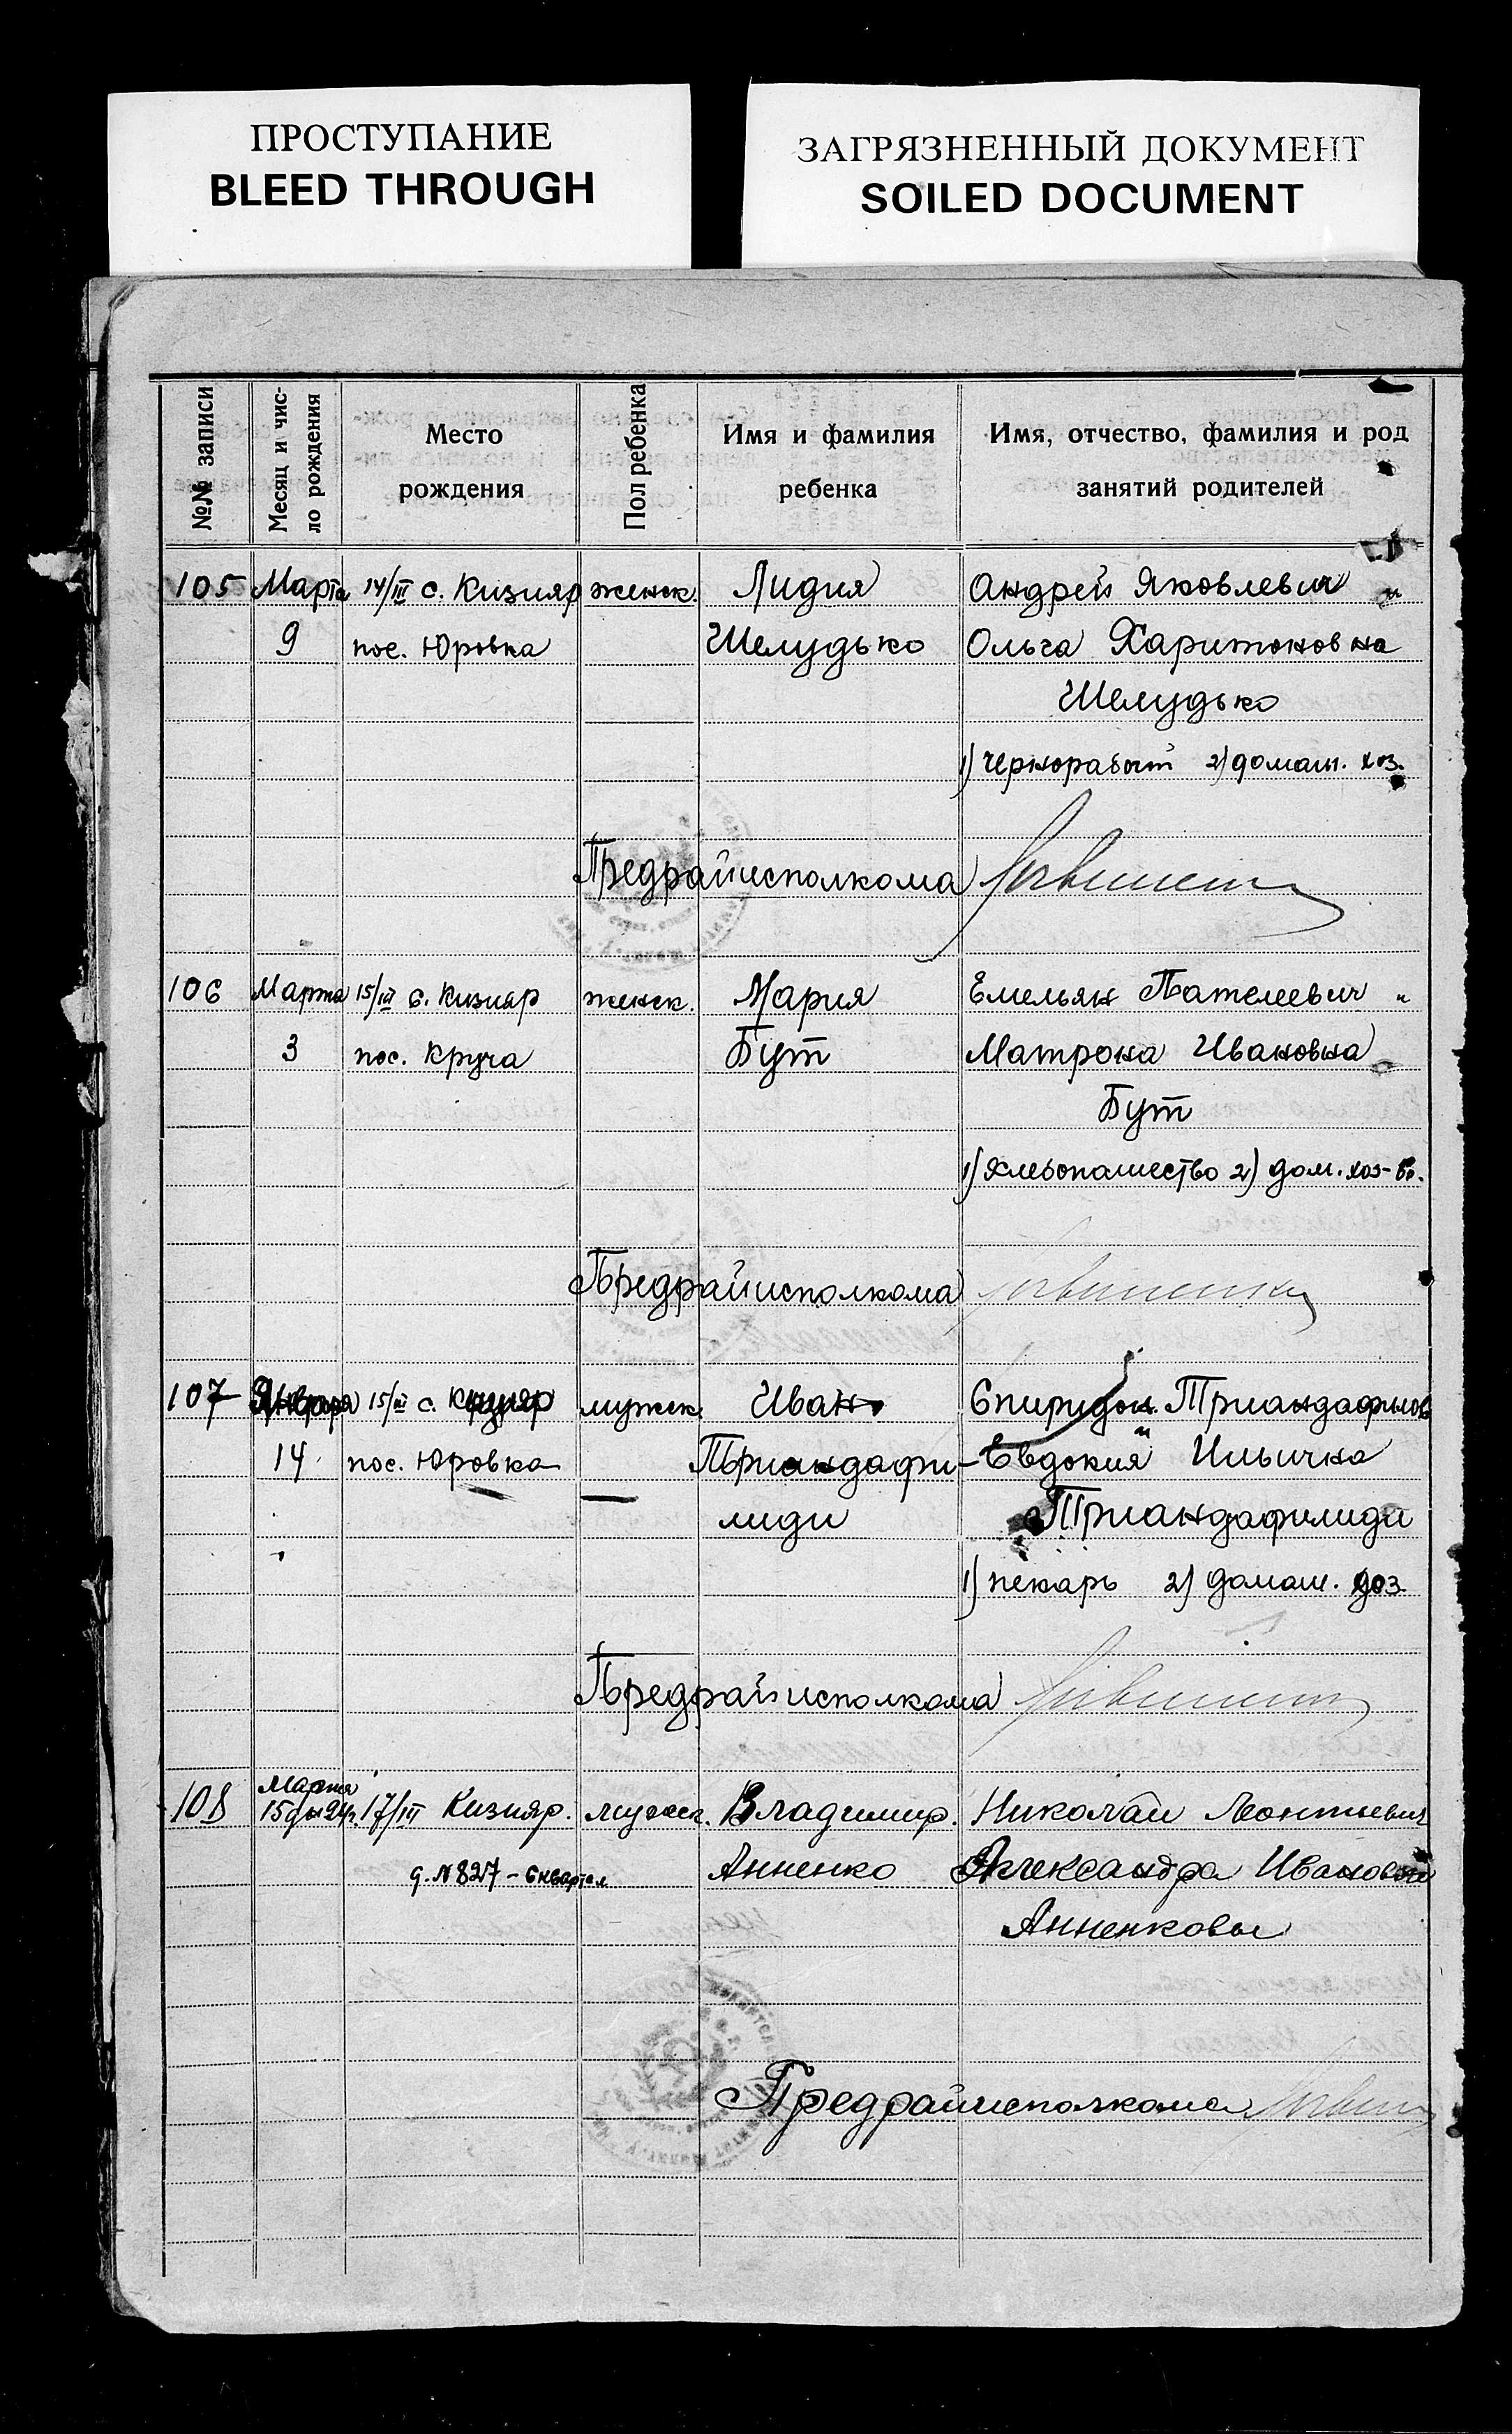 ПРОСТУПАНИЕ
BLEED THROUGH
ЗАГРЯЗНЕННЫЙ ДОКУМЕНТ
SOILED DOCUMENT
№№ записи
Месяц и чис-
ло рождения
Место
рождения
Пол ребенка
Имя и фамилия
ребенка
Имя, отчество, фамилия и род
занятий родителей
105 Марта 14/III с. Кизияр женск. Лидия Андрей Яковлевич и
9 пос. Юровка Шелудько Ольга Харитоновна
Шелудько
1) чернорабоч 2) домаш. хоз.
Предрайисполкома
106 Марта 15/III с. Кизияр женск. Мария Емельян Пателеевич "
3 пос. Круча Бут Матрона Ивановна
Бут
1) Хлебопашество 2) дом. хоз-во.
Предрайисполкома
107 Января 15/III с. Кизияр мужск. Иван Спиридон Триандафилов
14 пос. Юровка Триандафи- Евдокия Ильична
лиди Триандафилиди
1) пекарь 2) домаш. хоз.
Предрайисполкома
108 Марта
15дн 24г. 17/III Кизияр. мужск. Владимир. Николай Леонтьевич
д. № 827 - 6 квартал Анненко Александра Ивановна
Анненковы
Предрайисполкома